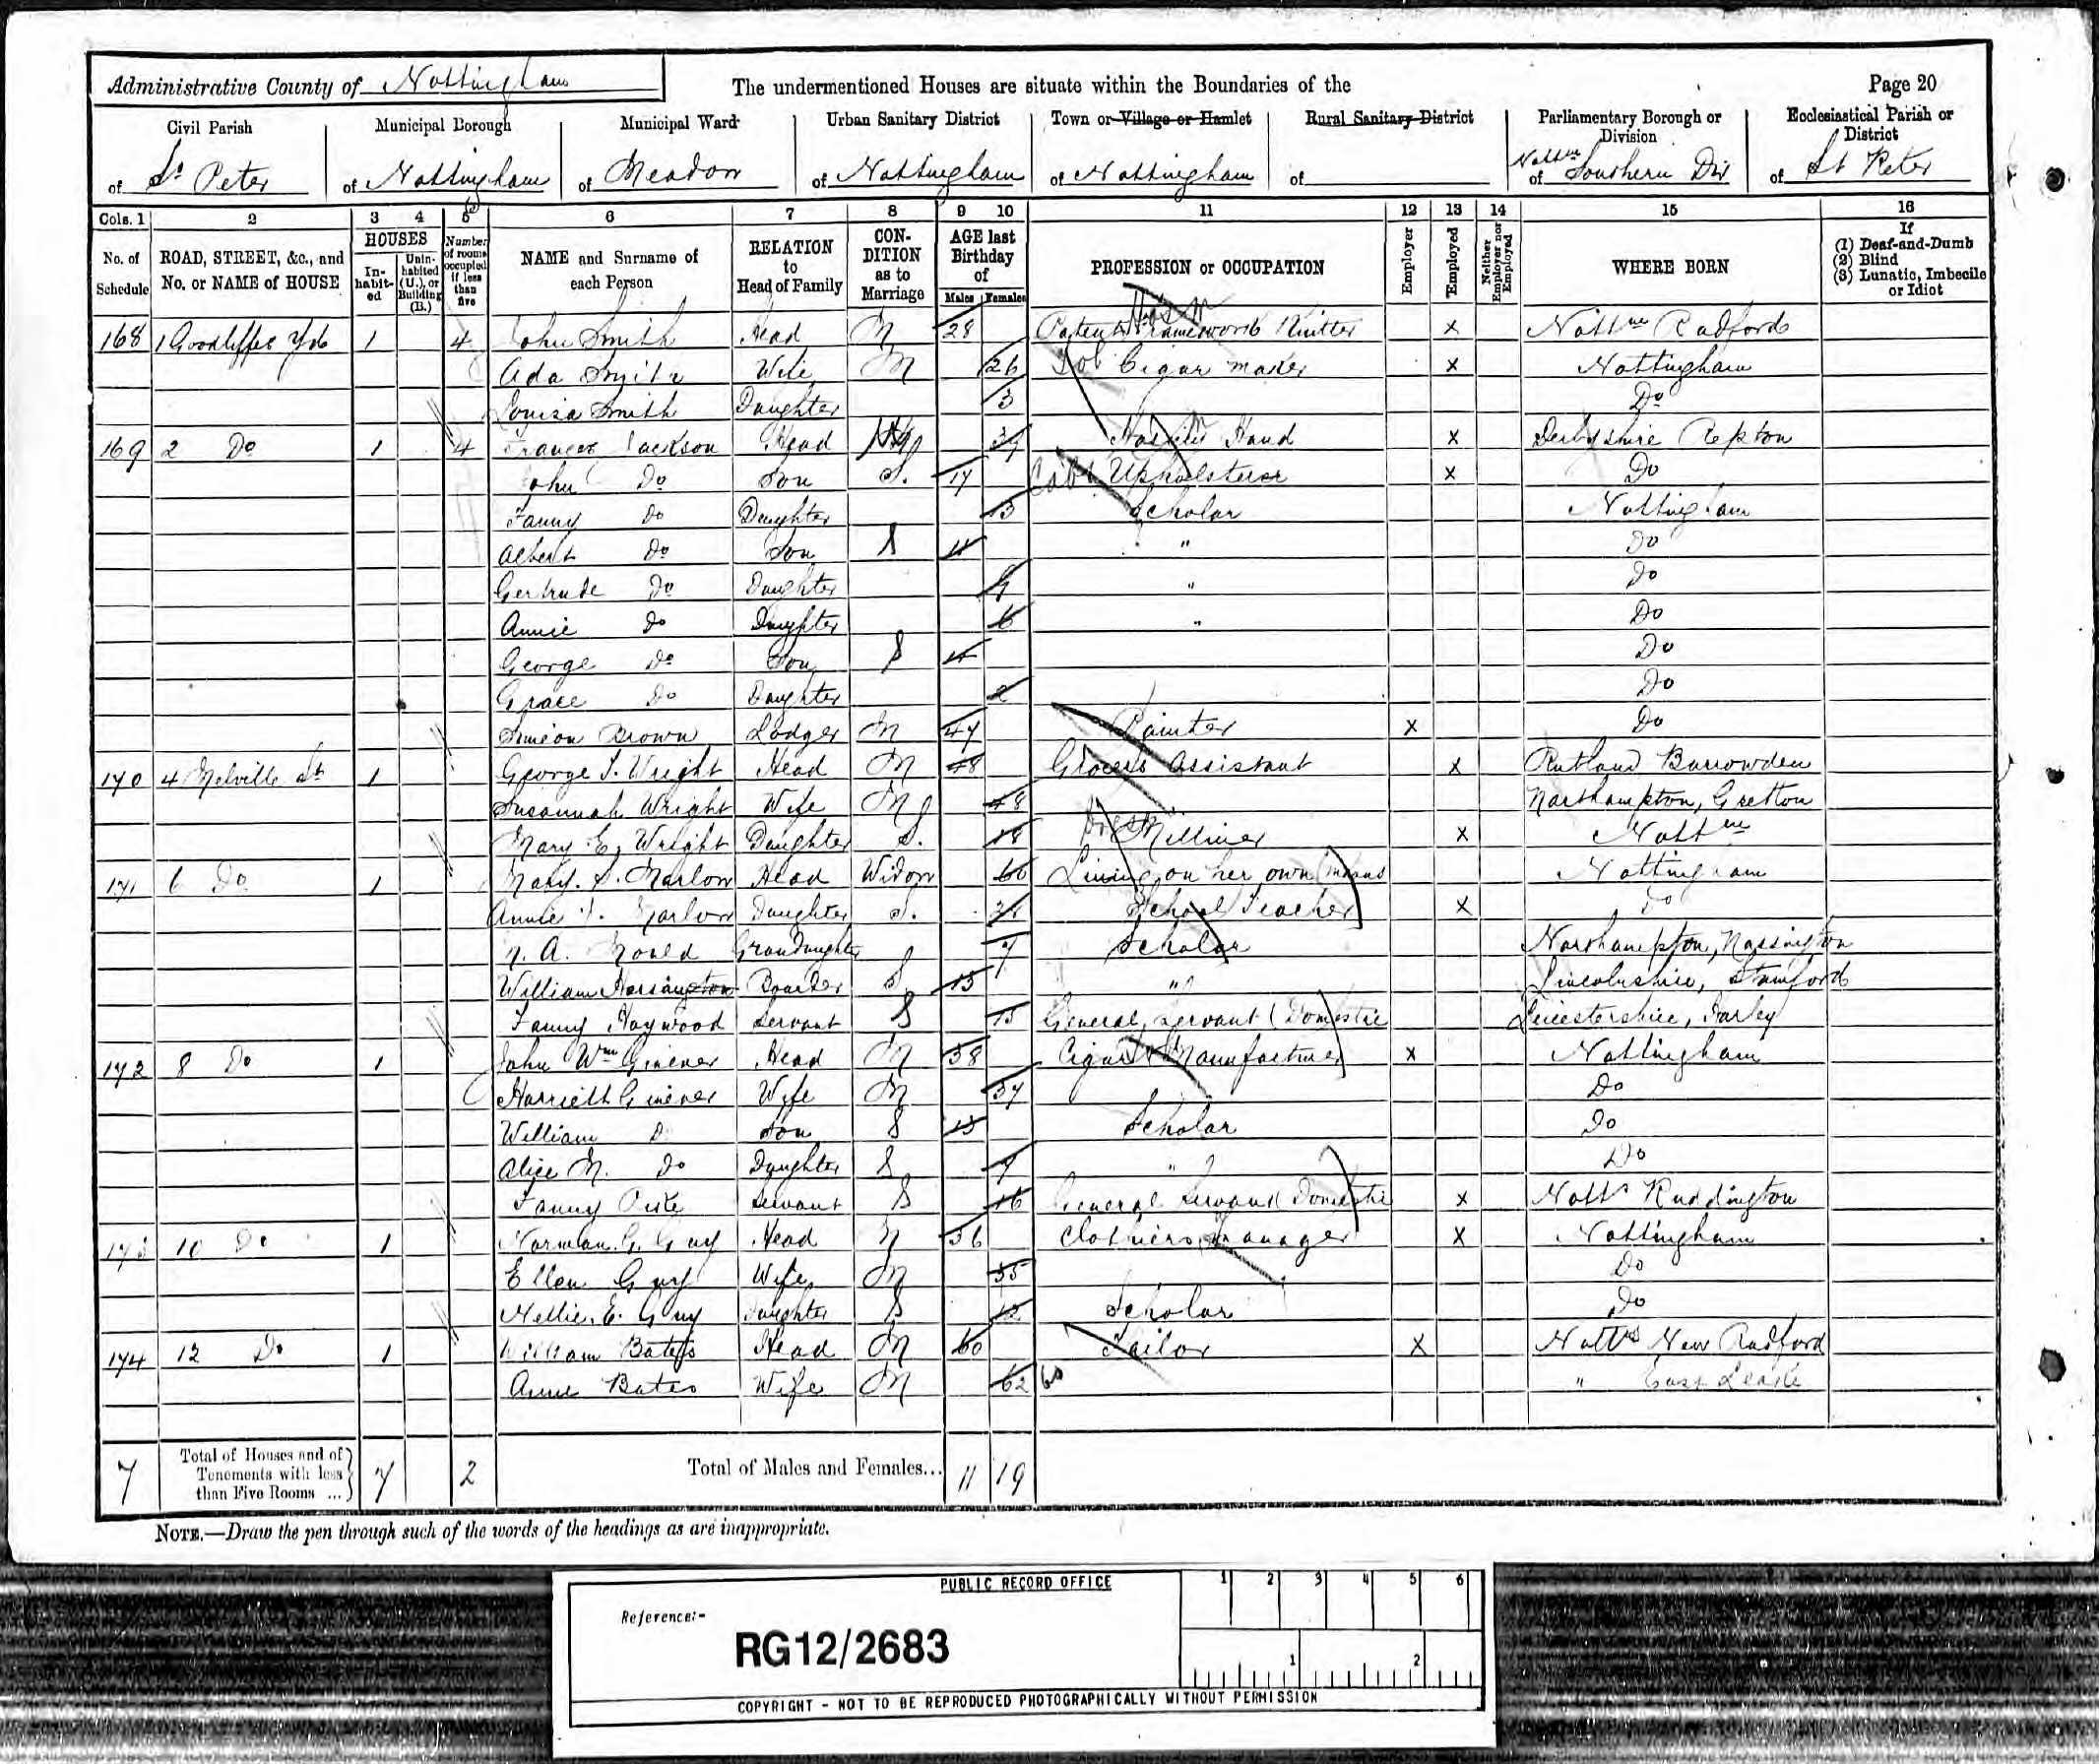 Administrative County of Nottingham
The undermentioned Houses are situate within the Boundaries of the
Page 20
Civil Parish of St Peter
Municipal Borough of Nottingham
Municipal Ward of Meadow
Urban Sanitary District of Nottingham
Town or Village or Hamlet of Nottingham
Rural Sanitary District of
Parliamentary Borough or Division of Nottm Southern Div
Ecclesiastical Parish or District of St Peter
Cols. 1 2 3 4 5 6 7 8 9 10 11 12 13 14 15 16
No. of Schedule
ROAD, STREET, &c., and No. or NAME of HOUSE
HOUSES
In-habit-ed
Unin-habited (U.), or Building (B.)
Number of rooms occupied if less than five
NAME and Surname of each Person
RELATION to Head of Family
CON-DITION as to Marriage
AGE last Birthday of
Males Females
PROFESSION or OCCUPATION
Employer
Employed
Neither Employer nor Employed
WHERE BORN
If
(1) Deaf-and-Dumb
(2) Blind
(3) Lunatic, Imbecile or Idiot
168 1 Goodliffes Yd 1 4 John Smith Head M 28 Patent Framework Knitter x Nottm Radford
Ada Smith Wife M 26 Cigar maker x Nottingham
Louisa Smith Daughter 3 Do
169 2 Do 1 4 Frances Jackson Head 37 Hand x Derbyshire Repton
John Do Son S. 17 Upholsterer x Do
Fanny Do Daughter 13 Scholar Nottingham
Albert Do Son S 11 " Do
Gertrude Do Daughter 9 " Do
Annie Do Daughter 6 " Do
George Do Son S 4 Do
Grace Do Daughter 2 Do
Simeon Brown Lodger M 47 Painter x Do
170 4 Melville St 1 George S. Wright Head M 48 Grocers Assistant x Rutland Barrowden
Susannah Wright Wife M 48 Northampton, Gretton
Mary E. Wright Daughter S. 18 Milliner x Nottm
171 6 Do 1 Mary. S. Marlow Head Widow 66 Living on her own means Nottingham
Annie Marlow Daughter S. School Teacher x Do
A. Mould Grandaughter 7 Scholar Northampton, Nassington
William Boarder S 13 " Lincolnshire, Stamford
Fanny Haywood Servant S 15 General Servant (Domestic Leicestershire,
172 8 Do 1 John Wm Ginever Head M 38 Cigar Manufacturer x Nottingham
Harriett Ginever Wife M 37 Do
William Do Son S 13 Scholar Do
Alice M. Do Daughter S 9 " Do
Fanny Servant S 16 General Servant Domestic x Notts Ruddington
173 10 Do 1 Norman. G. Guy Head M 36 Clothiers Manager x Nottingham
Ellen Guy Wife M 35 Do
Nellie. E. Guy Daughter S 12 Scholar Do
174 12 Do 1 William Bates Head M 60 Tailor x Notts New Radford
Anne Bates Wife M 62 60 " East Leake
7 Total of Houses and of Tenements with less than Five Rooms ... 7 2 Total of Males and Females... 11 19
NOTE.—Draw the pen through such of the words of the headings as are inappropriate.
PUBLIC RECORD OFFICE
1 2 3 4 5 6
Reference:-
RG12/2683
1 2
COPYRIGHT - NOT TO BE REPRODUCED PHOTOGRAPHICALLY WITHOUT PERMISSION